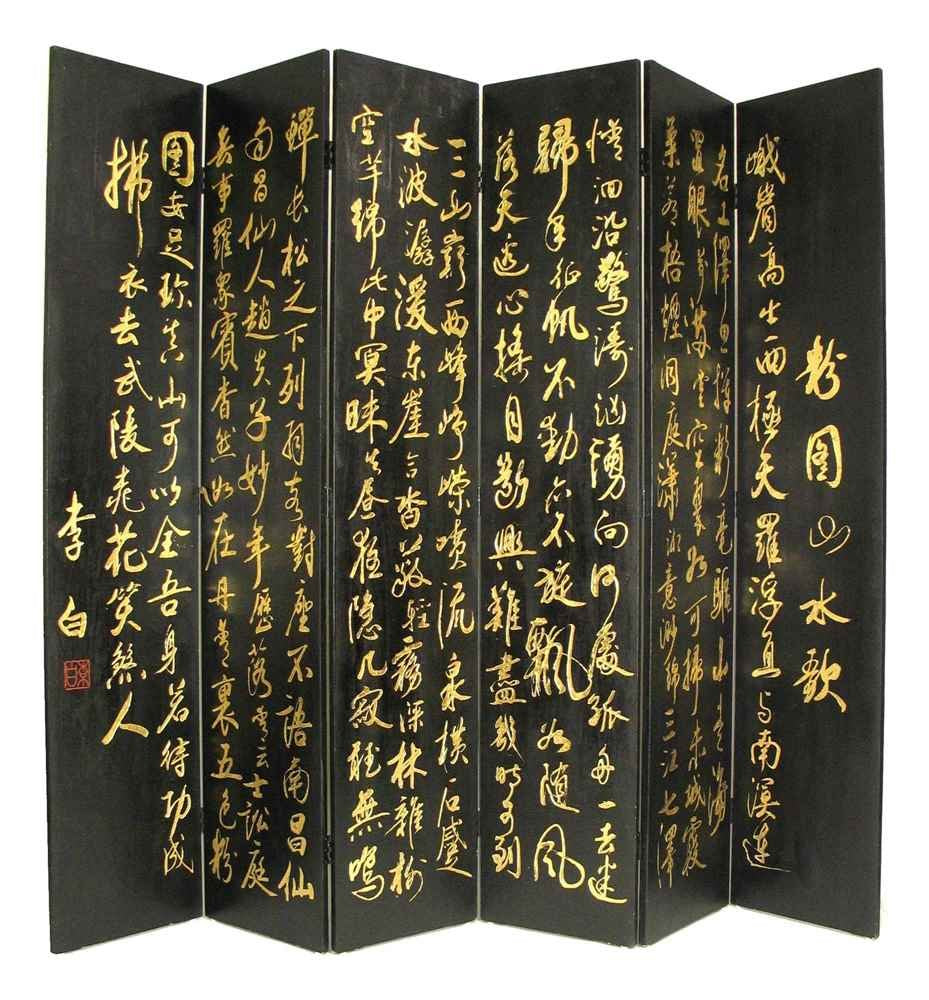 粉圖山水歌
峨眉高出西極天羅浮直与南溟連
名工繹思揮彩毫驅山走海
置眼前滿堂空翠如可掃赤城霞
氣蒼梧煙洞庭瀟湘意渺綿三江七澤
情洄沿驚濤洶湧向何處孤舟一去迷
歸年征帆不動亦不旋飄如隨風
落天邊心搖目斷興難盡幾時可到
三山巔西峰崢嶸噴流泉橫石蹙
水波潺湲東崖合沓蔽輕霧深林雜樹
空芊綿此中冥昧失晝夜隱几寂聽無鳴
蟬長松之下列羽客對座不語南昌仙
南昌仙人趙夫子妙年歷落青雲士訟庭
無事羅眾賓杳然如在丹青裏五色粉
圖安足珍真山可以全吾身若待功成
拂衣去武陵桃花笑煞人
李白